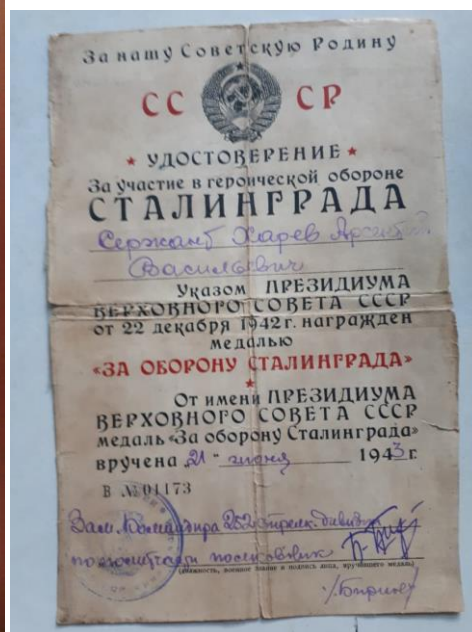 За нашу Советскую Родину
СС СР
★ УДОСТОВЕРЕНИЕ ★
За участие в героической обороне
СТАЛИНГРАДА
Сержант Харев
Васильевич
Указом ПРЕЗИДИУМА
ВЕРХОВНОГО СОВЕТА СССР
от 22 декабря 1942 г. награжден
медалью
«ЗА ОБОРОНУ СТАЛИНГРАДА»
★
От имени ПРЕЗИДИУМА
ВЕРХОВНОГО СОВЕТА СССР
медаль «За оборону Сталинграда»
вручена „21" июня 1943 г.
В № 01173
Зам. Командира 252 стрелк. дивизии
по политчасти полковник
(должность, военное звание и подпись лица, вручившего медаль)